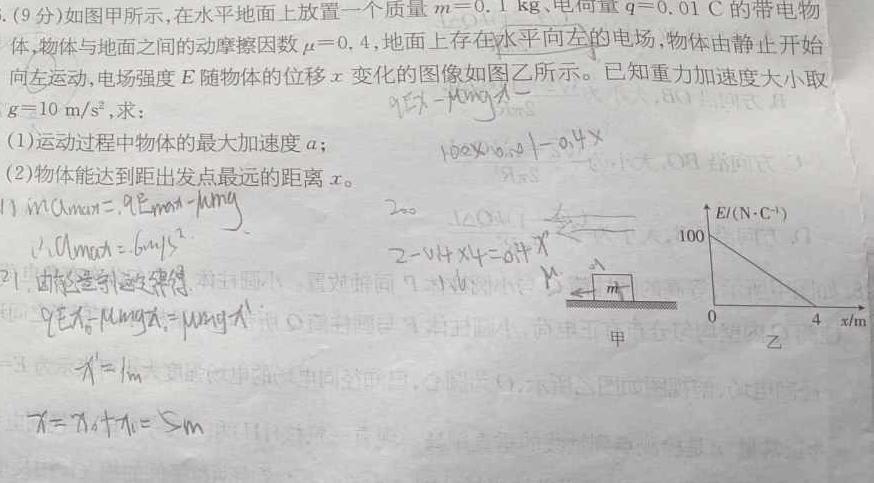 .(9分)如图甲所示,在水平地面上放置一个质量m=0.1 kg、电荷量q=0.01 C的带电物
体,物体与地面之间的动摩擦因数μ=0.4,地面上存在水平向左的电场,物体由静止开始
向左运动,电场强度E随物体的位移x变化的图像如图乙所示。已知重力加速度大小取
g=10 m/s²,求:
qEx-μmgx
(1)运动过程中物体的最大加速度a;
100×0.01-0.4x
(2)物体能达到距出发点最远的距离x。
1) mamax=qEmax-μmg
∴amax=6m/s²
2) 由能量守恒定律得
qEx₀-μmgx₀=μmgx'
x'=1m
x=x₀+x₁=5m
200
2-0.4×4=0.4x'
m
甲
E/(N·C⁻¹)
100
0
4
x/m
乙